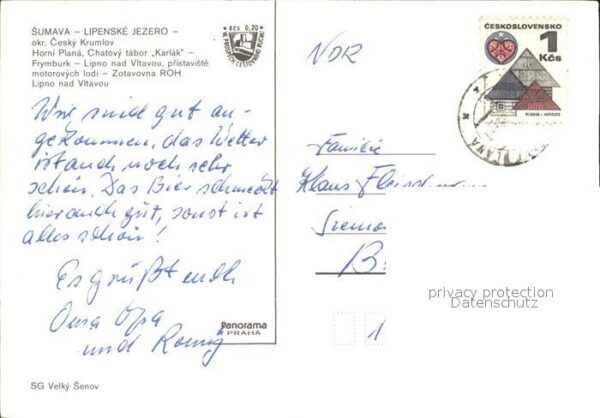 ŠUMAVA – LIPENSKÉ JEZERO –
okr. Český Krumlov
Horní Planá, Chatový tábor „Karlák" –
Frymburk – Lipno nad Vltavou, přístaviště
motorových lodí – Zotavovna ROH
Lipno nad Vltavou
Kčs 0,20
Wir sind gut an-
gekommen, das Wetter
ist auch noch sehr
schön. Das Bier schmeckt
hier auch gut, sonst ist
alles schön!
Es grüßt euch
Oma Opa
und Romy
Panorama
PRAHA
SG Velký Šenov
NDR
ČESKOSLOVENSKO
1
Kčs
Familie
Klaus
Siemo
B
1
privacy protection
Datenschutz